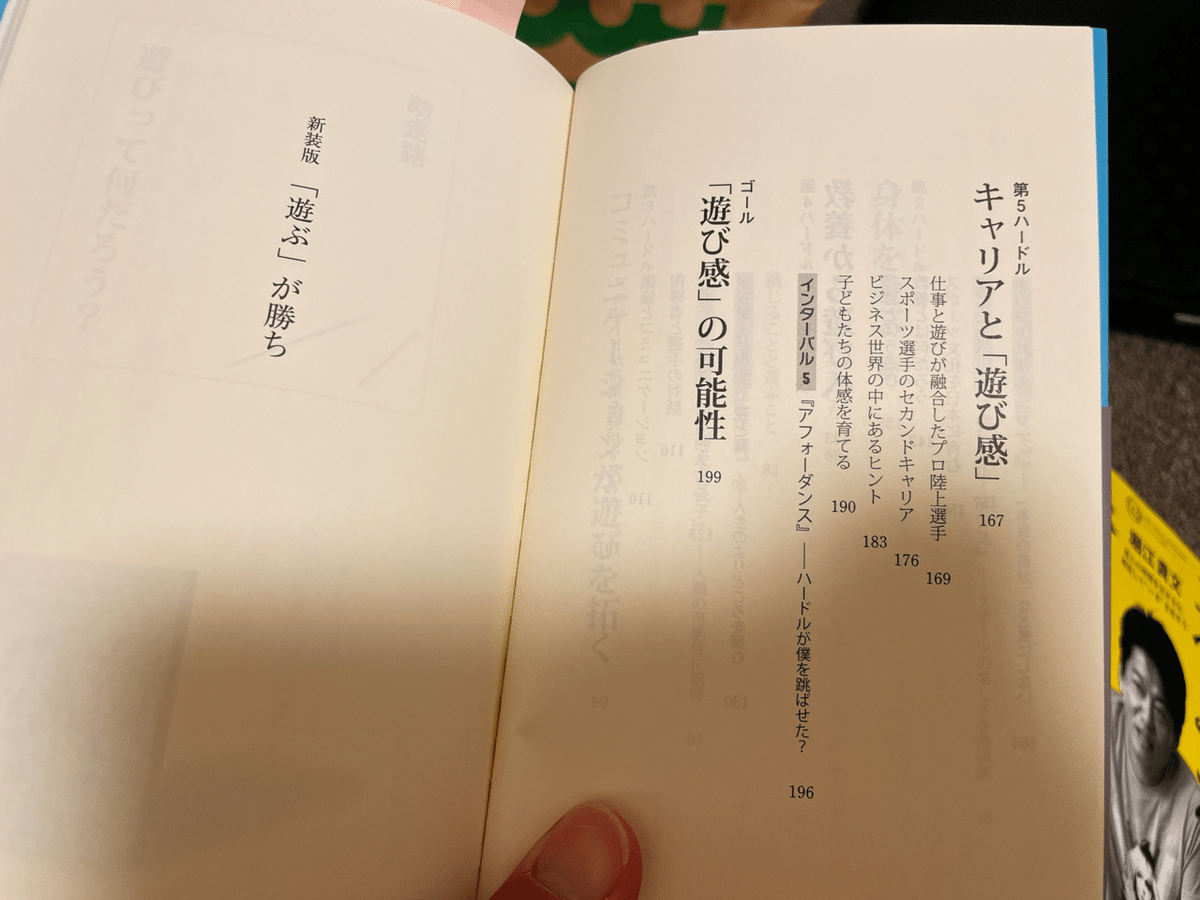 第5ハードル
キャリアと「遊び感」 167
仕事と遊びが融合したプロ陸上選手 169
スポーツ選手のセカンドキャリア 176
ビジネス世界の中にあるヒント 183
子どもたちの体感を育てる 190
インターバル 5 『アフォーダンス』――ハードルが僕を跳ばせた? 196
ゴール
「遊び感」の可能性 199
新装版 「遊ぶ」が勝ち
堀江貴文